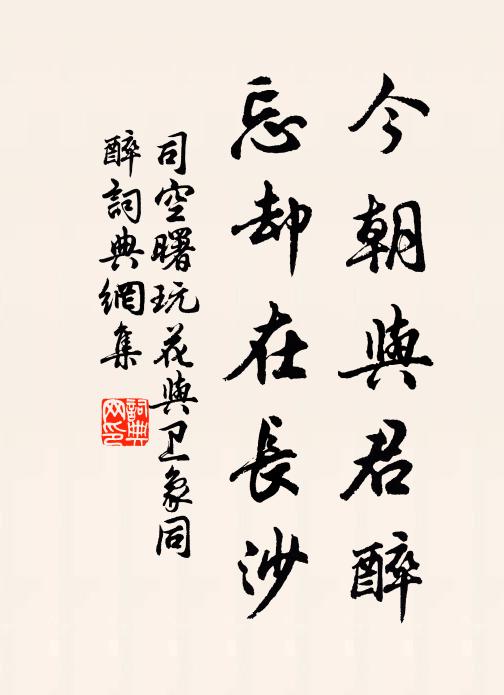 今朝與君醉
忘却在長沙
司空曙玩花與卫象同
醉詞典網集
詞典
网印